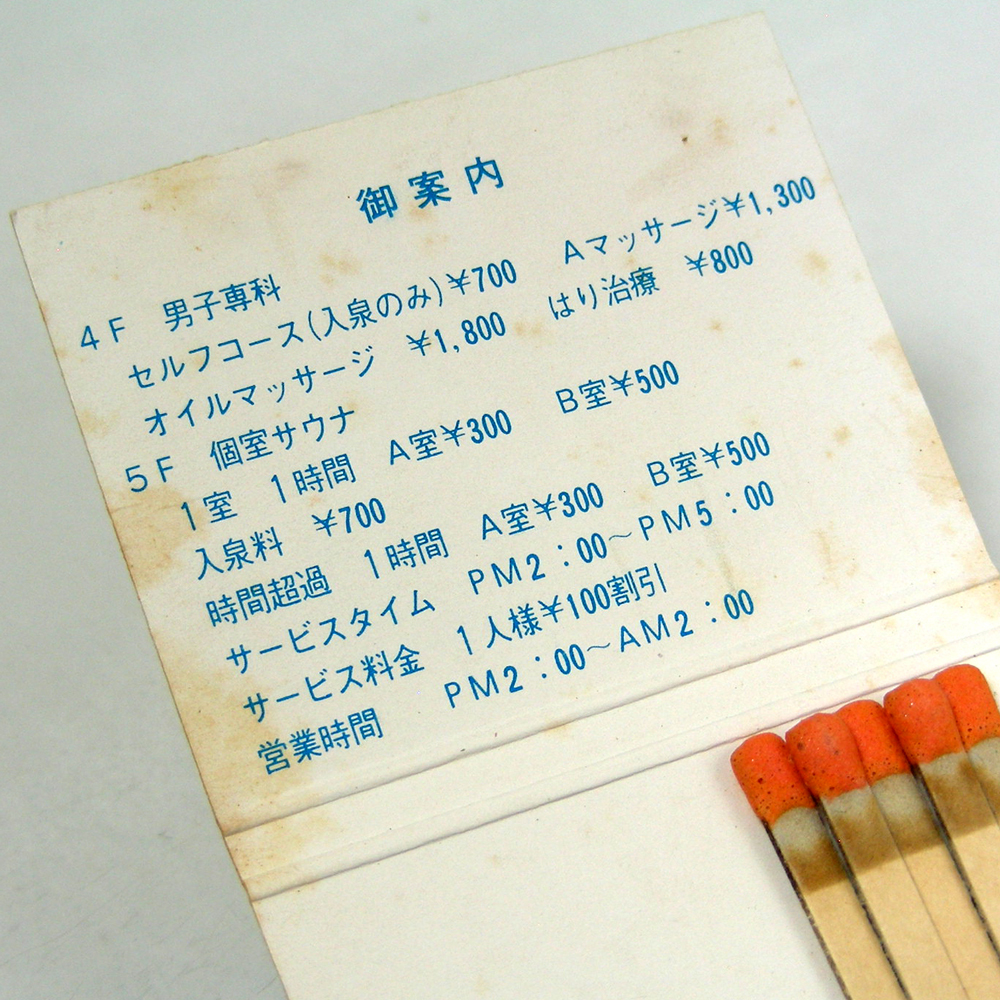 御案内
4F 男子専科
セルフコース(入泉のみ)¥700 Aマッサージ¥1,300
オイルマッサージ ¥1,800 はり治療 ¥800
5F 個室サウナ
1室 1時間 A室¥300 B室¥500
入泉料 ¥700
時間超過 1時間 A室¥300 B室¥500
サービスタイム PM2:00~PM5:00
サービス料金 1人様¥100割引
営業時間 PM2:00~AM2:00